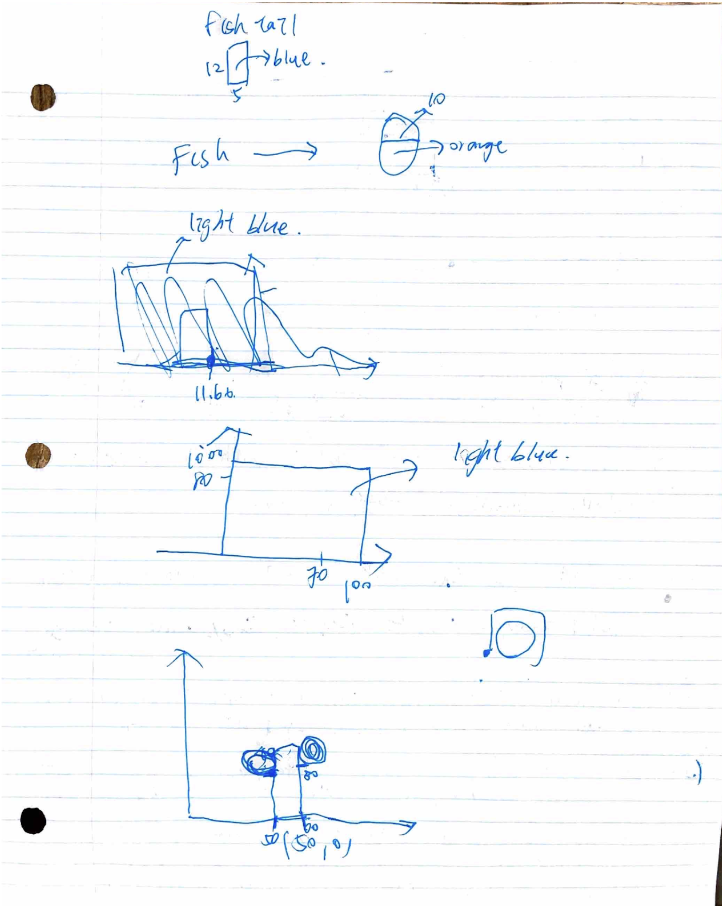 Fish tail
12 blue.
5
10
Fish orange
light blue.
11.60.
1000
80
light blue.
70
100
80
50 60
(50, 0)